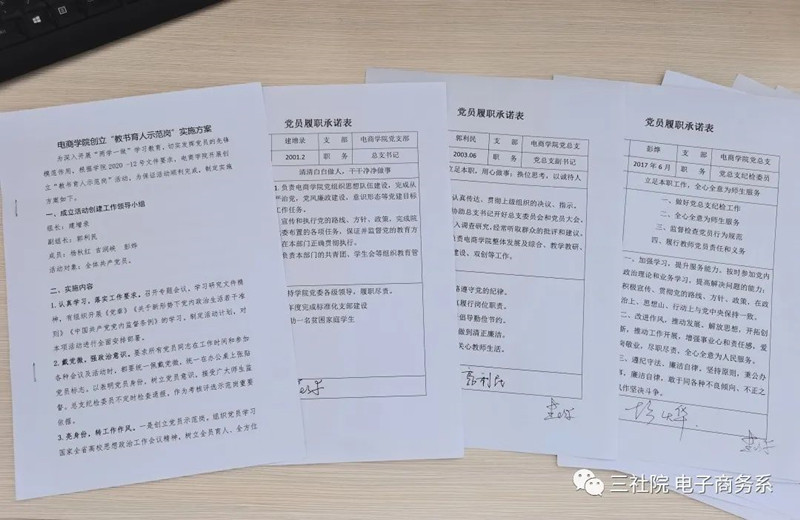 电商学院创立“教书育人示范岗”实施方案
为深入开展“两学一做”学习教育，切实发挥党员的先锋
模范作用，根据学院 2020 -12 号文件要求，电商学院开展创
立“教书育人示范岗”活动，为保证活动顺利完成，制定实施
方案如下。
一、成立活动创建工作领导小组
组长：建增录
副组长：郭利民
成员：杨秋红 彭烨
活动对象：全体共产党员。
二、实施内容
1.认真学习，落实工作要求。召开专题会议，学习研究文件精
神，有组织开展《党章》《关于新形势下党内政治生活若干准
则》《中国共产党党内监督条例》的学习，制定活动计划，对
本项活动进行全面安排部署。
2.戴党徽，强政治意识。要求所有党员同志在工作时间和参加
各种会议及活动时，都要统一佩戴党徽，统一在办公桌上张贴
党员标志，以表明党员身份，树立党员意识，接受广大师生监
督。总支纪检委员不定时检查通报，作为考核评选示范岗重要
依据。
3.亮身份，转工作作风。一是创立党员示范岗，组织党员学习
国家全省高校思想政治工作会议精神，树立全员育人、全方位
党员履职承诺表
建增录 支 部 电商学院党支部
2001.2 职 务 总支书记
清清白白做人，干干净净做事
1.负责电商学院党组织思想队伍建设，完成从
严治党，党风廉政建设，意识形态等党建目标
工作任务。
宣传和执行党的路线，方针，政策，完成院
委布置的各项任务，保证并监督党的教育方
在本部门正确贯彻执行。
负责本部门的共青团，学生会等组织教育管
持学院党委各级领导，履职尽责。
年度完成标准化支部建设
助一名贫困家庭学生
党员履职承诺表
郭利民 支 部 电商学院党总支
2003.06 职 务 党总支副书记
立足本职，用心做事；换位思考，以诚待人
认真传达、贯彻上级组织的决议、指示。
协助总支书记开好总支委员会和党员大会。
入调查研究，经常听取群众的批评和建议。
负责电商学院整体发展及综合、教学教研、
建设、双创等工作。
格遵守党的纪律。
真履行岗位职责。
倡导勤俭节约。
做到清正廉洁。
关心教师生活。
郭利民
党员履职承诺表
彭烨 支 部 电商学院党总支
2017 年 6 月 职 务 党总支纪检委员
立足本职工作，全心全意为师生服务
一、做好党总支纪检工作
二、全心全意为师生服务
三、监督检查党员行为规范
四、履行教师党员责任和义务
一、加强学习，提升服务能力。按时参加党内
政治理论和业务学习，提高解决问题的能力；
积极宣传、贯彻党的路线、方针、政策，在政
治上、思想山、行动上与党中央保持一致。
二、改进作风，推动发展。解放思想，开拓创
新，推动工作开展，增强事业心和责任感，爱
岗敬业，尽职尽责、全心全意为人民服务。
三、遵纪守法、廉洁自律。坚持原则，秉公办
事，廉洁自律，敢于同各种不良倾向、不正之
风作坚决斗争。
三社院 电子商务系